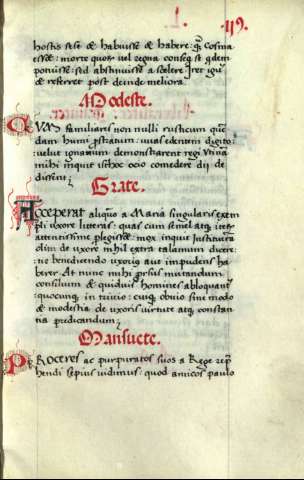 119.
hostis sese & habuisse & habere: Cosma
esse: morte quor vel regna conseq st qdem
potuisse: sed abstinuisse a scelere
& referret post deinde meliora.
Modeste.
QVAM familiaris non nulli rusticum quē
dam humi pstratum: uvas edentem digito:
velut ignarum demonstrarent regi: Vtina
mihi inquit istęc ocio comedere dij de
dissent;
Grate.
Acceperat aliquo a Maria singularis exem
pli vxore litteras: quas cum semel atq iteꝝ
attentissime plegisset: mox inquit Institueram
olim de vxore nihil extra talamum dicere:
ne benedicendo vxoriꝰ aut impudens ha
berer. At nunc mihi prorsus mutandum
consilium & quiduis homines abloquant
quocunq in triuio: cuiq obuio sine modo
& modestia de vxoris virtute atq constan
tia predicandum;
Mansuete.
PROCeres ac purpuratos suos a Rege rep
hendi sepius vidimus: quod amicos paulo